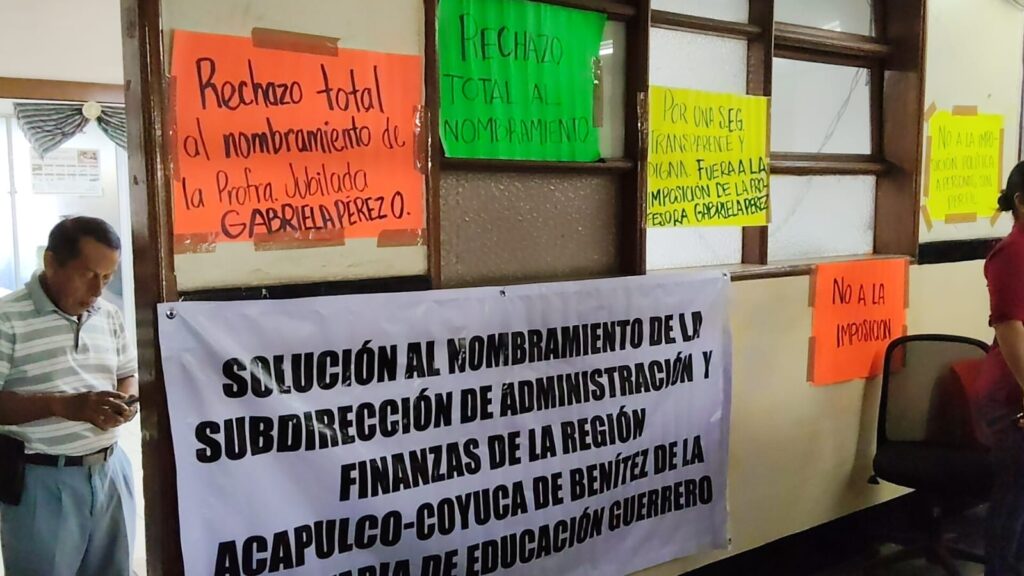 Rechazo total
al nombramiento de
la Profra. Jubilada
GABRIELA PÉREZ O.
RECHAZO
TOTAL AL
NOMBRAMIENTO
POR UNA SEG
TRANSPARENTE Y
DIGNA. FUERA A LA
IMPOSICIÓN DE LA PRO-
FESORA GABRIELA PÉREZ
NO A LA IMPO-
SICIÓN POLÍTICA
A PERSONAS SIN
PERFIL
NO A LA
IMPOSICIÓN
SOLUCIÓN AL NOMBRAMIENTO DE LA
SUBDIRECCIÓN DE ADMINISTRACIÓN Y
FINANZAS DE LA REGIÓN
ACAPULCO-COYUCA DE BENÍTEZ DE LA
DE EDUCACIÓN GUERRERO